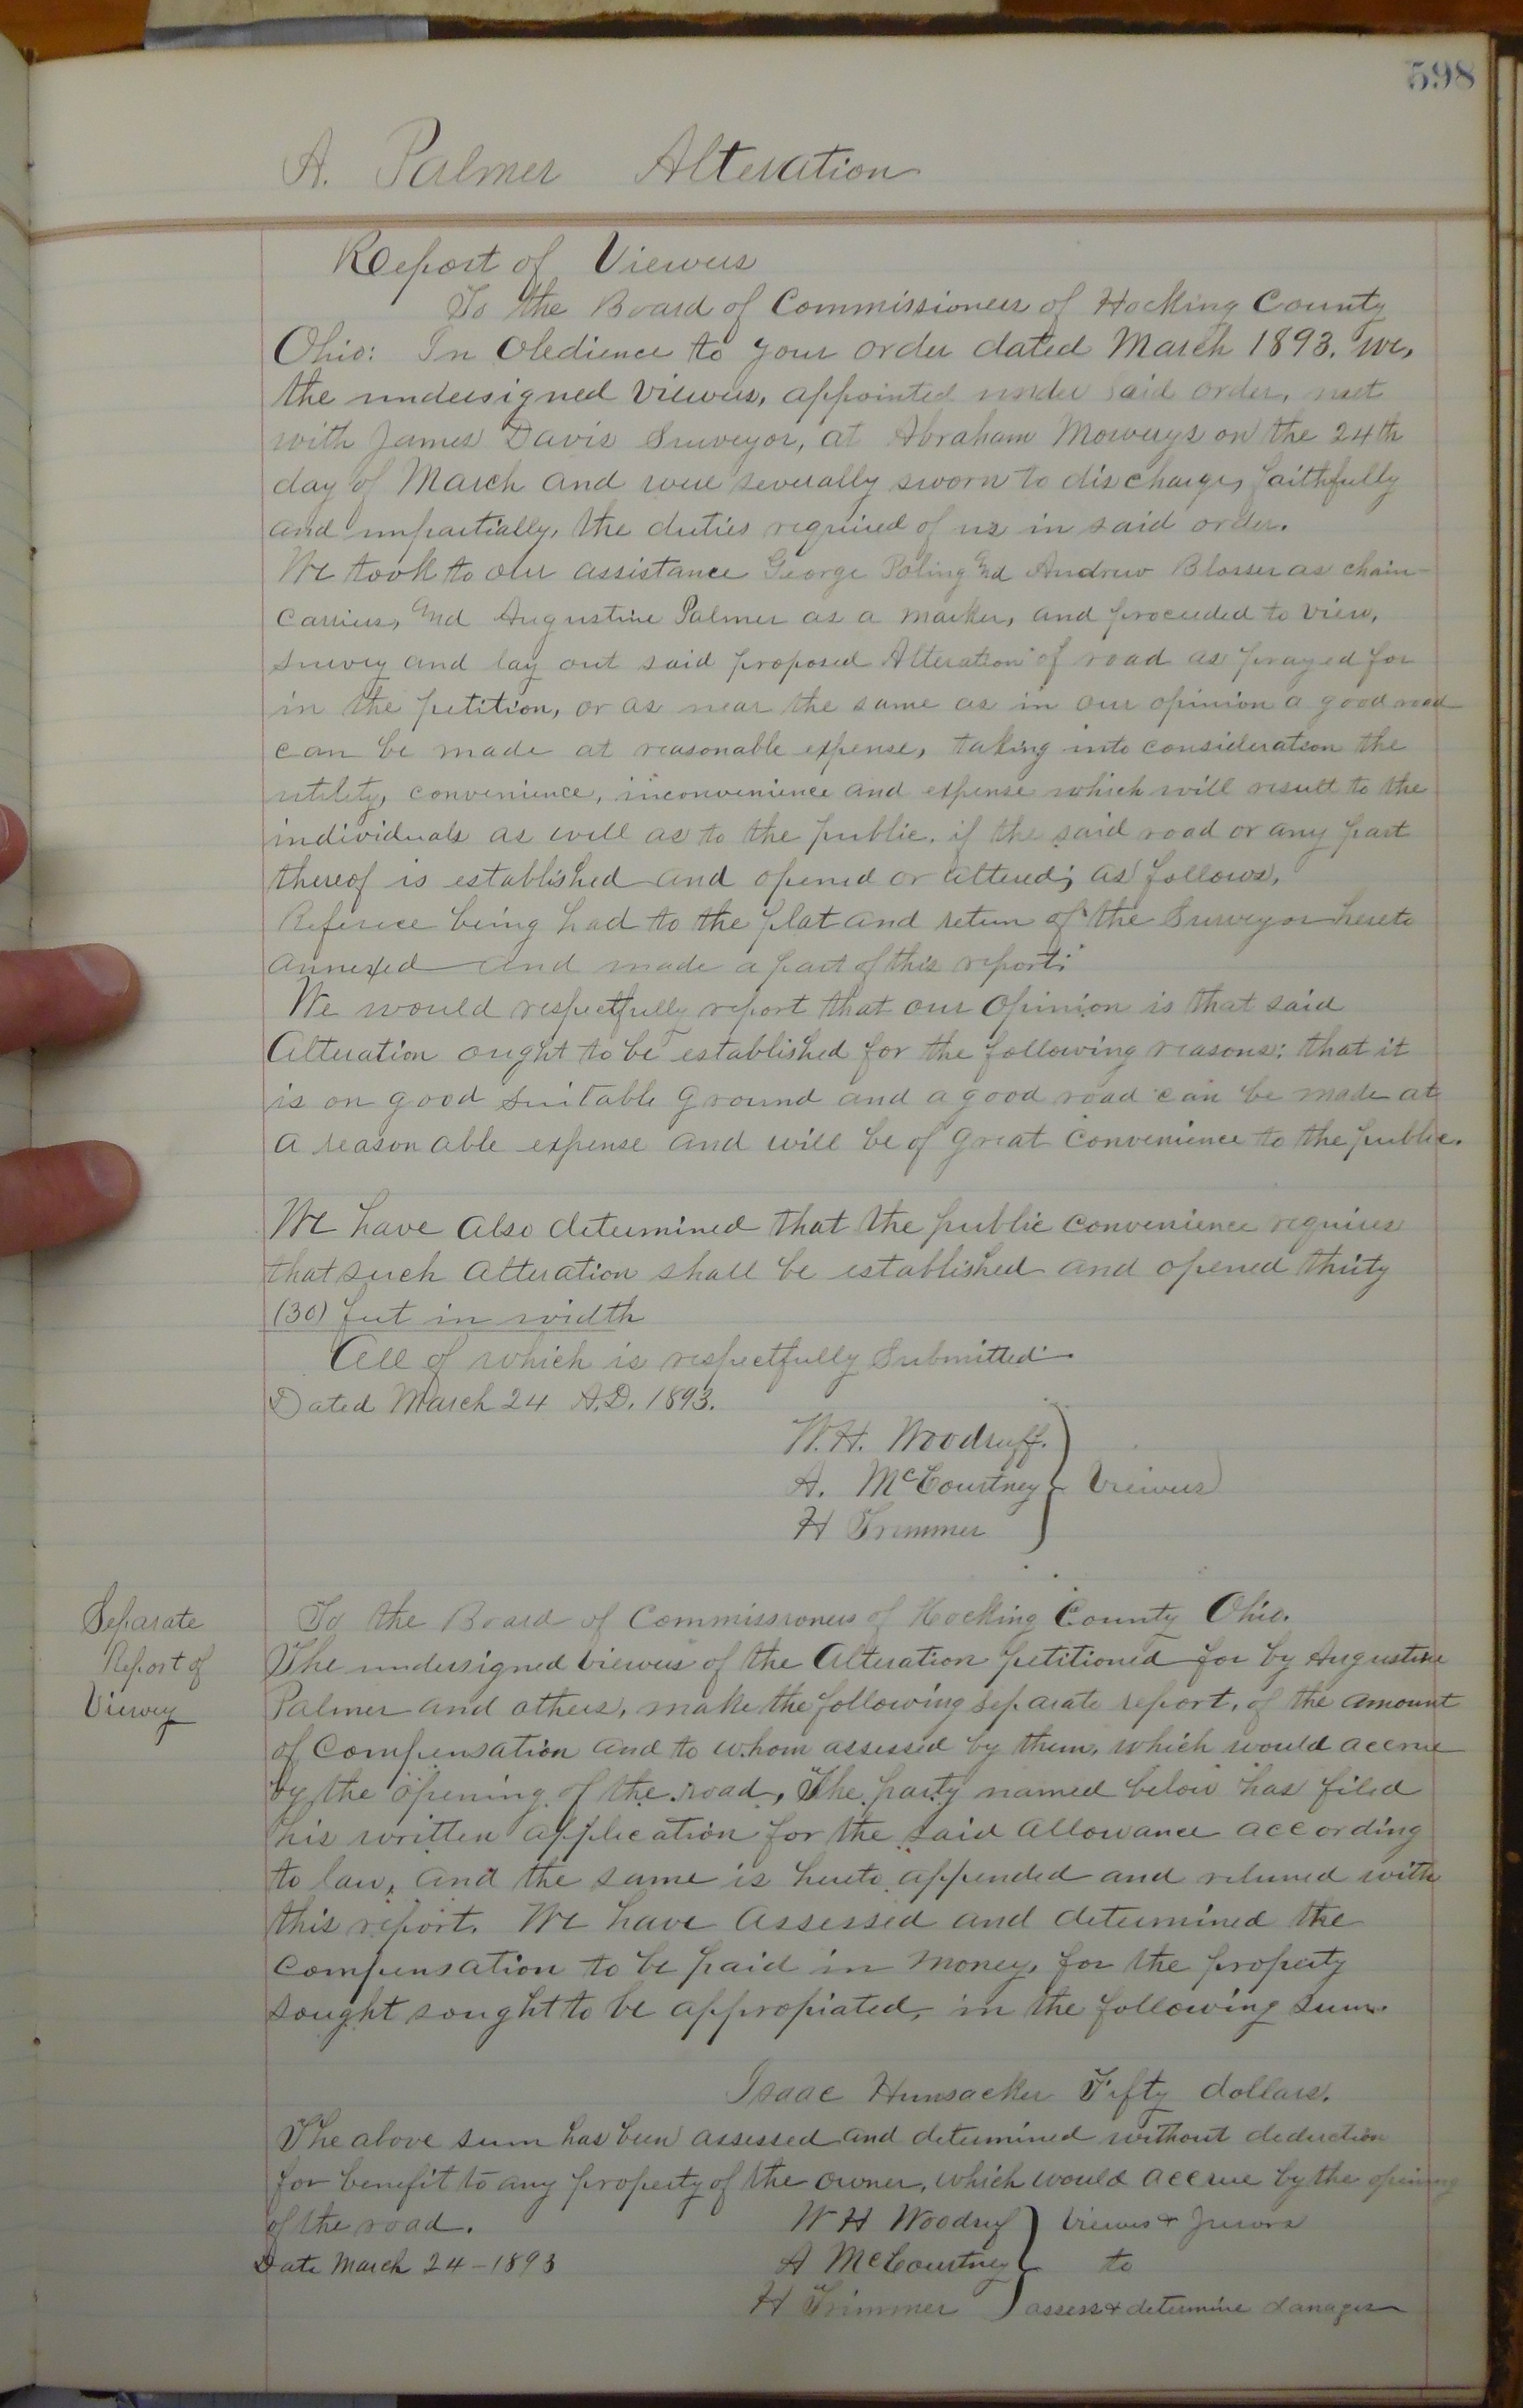 598
A. Palmer Alteration
Report of Viewers
To the Board of Commissioners of Hocking County
Ohio: In Obedience to your order dated March 1893. we,
the undersigned viewers, appointed under said order, met
with James Davis Surveyor, at Abraham Mowerys on the 24th
day of March and were severally sworn to discharge, faithfully
and impartially, the duties required of us in said order.
We took to our assistance George Poling and Andrew Blosser as chain-
carriers, and Augustine Palmer as a marker, and proceeded to view,
survey and lay out said proposed Alteration of road as prayed for
in the petition, or as near the same as in our opinion a good road
can be made at reasonable expense, taking into consideration the
utility, convenience, inconvenience and expense which will result to the
individuals as well as to the public, if the said road or any part
thereof is established and opened or altered; as follows,
Referece being had to the plat and return of the Surveyor hereto
annexed and made a part of this report:
We would respectfully report that our Opinion is that said
Alteration ought to be established for the following reasons: that it
is on good suitable ground and a good road can be made at
a reasonable expense and will be of great convenience to the public.
We have also determined that the public convenience requires
that such alteration shall be established and opened thirty
(30) feet in width
All of which is respectfully Submitted
Dated March 24 A.D. 1893.
W.H. Woodruff.
A. McCourtney } Viewers
H Trimmer
Separate
Report of
Viewey
To the Board of Commissioners of Hocking County Ohio.
The undersigned viewers of the Alteration petitioned for by Augustine
Palmer and others, make the following separate report, of the amount
of Compensation and to whom assessed by them, which would accrue
by the opening of the road, The party named below has filed
his written application for the said allowance according
to law, and the same is hereto appended and returned with
this report. We have assessed and determined the
compensation to be paid in money, for the property
sought sought to be appropiated, in the following sum.
Isaac Hunsacker Fifty dollars.
The above sum has been assessed and determined without deduction
for benefit to any property of the owner, which would accrue by the opening
of the road. W H Woodruf } Viewers & Jurors
Date March 24-1893 A McCourtney to
H Trimmer assess & determine damages